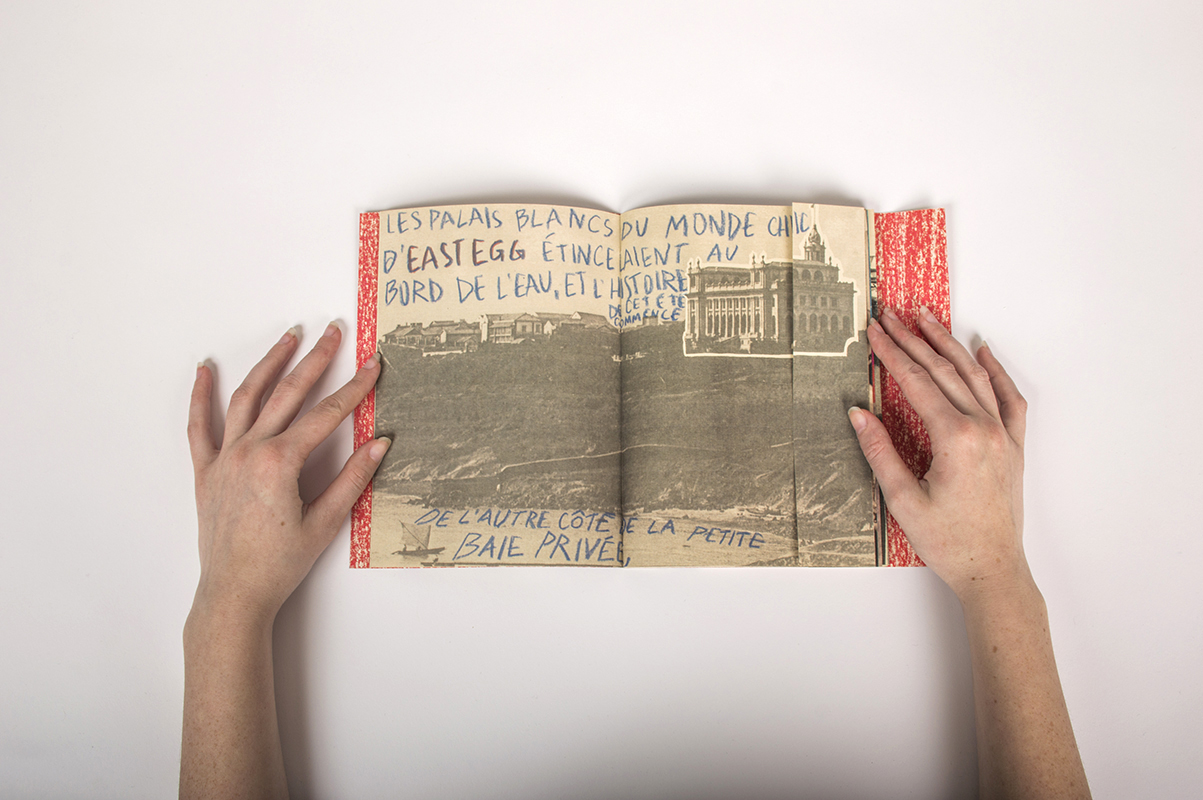 LES PALAIS BLANCS DU MONDE CHIC
D'EAST EGG ÉTINCELAIENT AU
BORD DE L'EAU, ET L'HISTOIRE
DE CET ÉTÉ
COMMENCE
DE L'AUTRE CÔTÉ DE LA PETITE
BAIE PRIVÉE,